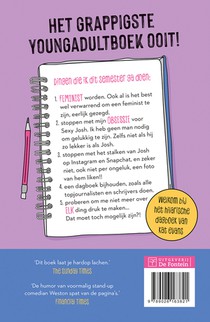 HET GRAPPIGSTE
YOUNGADULTBOEK OOIT!
Dingen die ik dit semester ga doen:
1. FEMINIST worden. Ook al is het best
wel verwarrend om een feminist te
zijn, eerlijk gezegd.
2. stoppen met mijn OBSESSIE voor
Sexy Josh. Ik heb geen man nodig
om gelukkig te zijn. Zelfs niet als hij
zo lekker is als Josh.
3. stoppen met het stalken van Josh
op Instagram en Snapchat, en zeker
niet, ook niet per ongeluk, een foto
van hem liken!!
4. een dagboek bijhouden, zoals alle
topjournalisten en schrijvers doen.
5. proberen om me niet meer over
ELK ding druk te maken...
Dat moet toch mogelijk zijn?!
Welkom bij
het hilarische
dagboek van
Kat Evans
'Dit boek laat je hardop lachen.'
The Sunday Times
'De humor van voormalig stand-up
comedian Weston spat van de pagina's.'
Financial Times
UITGEVERIJ
De Fontein